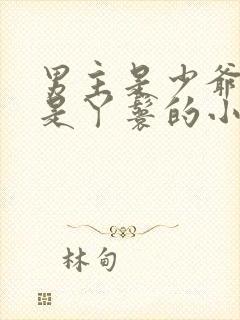 男主是少爷
是丫鬟的小
林甸